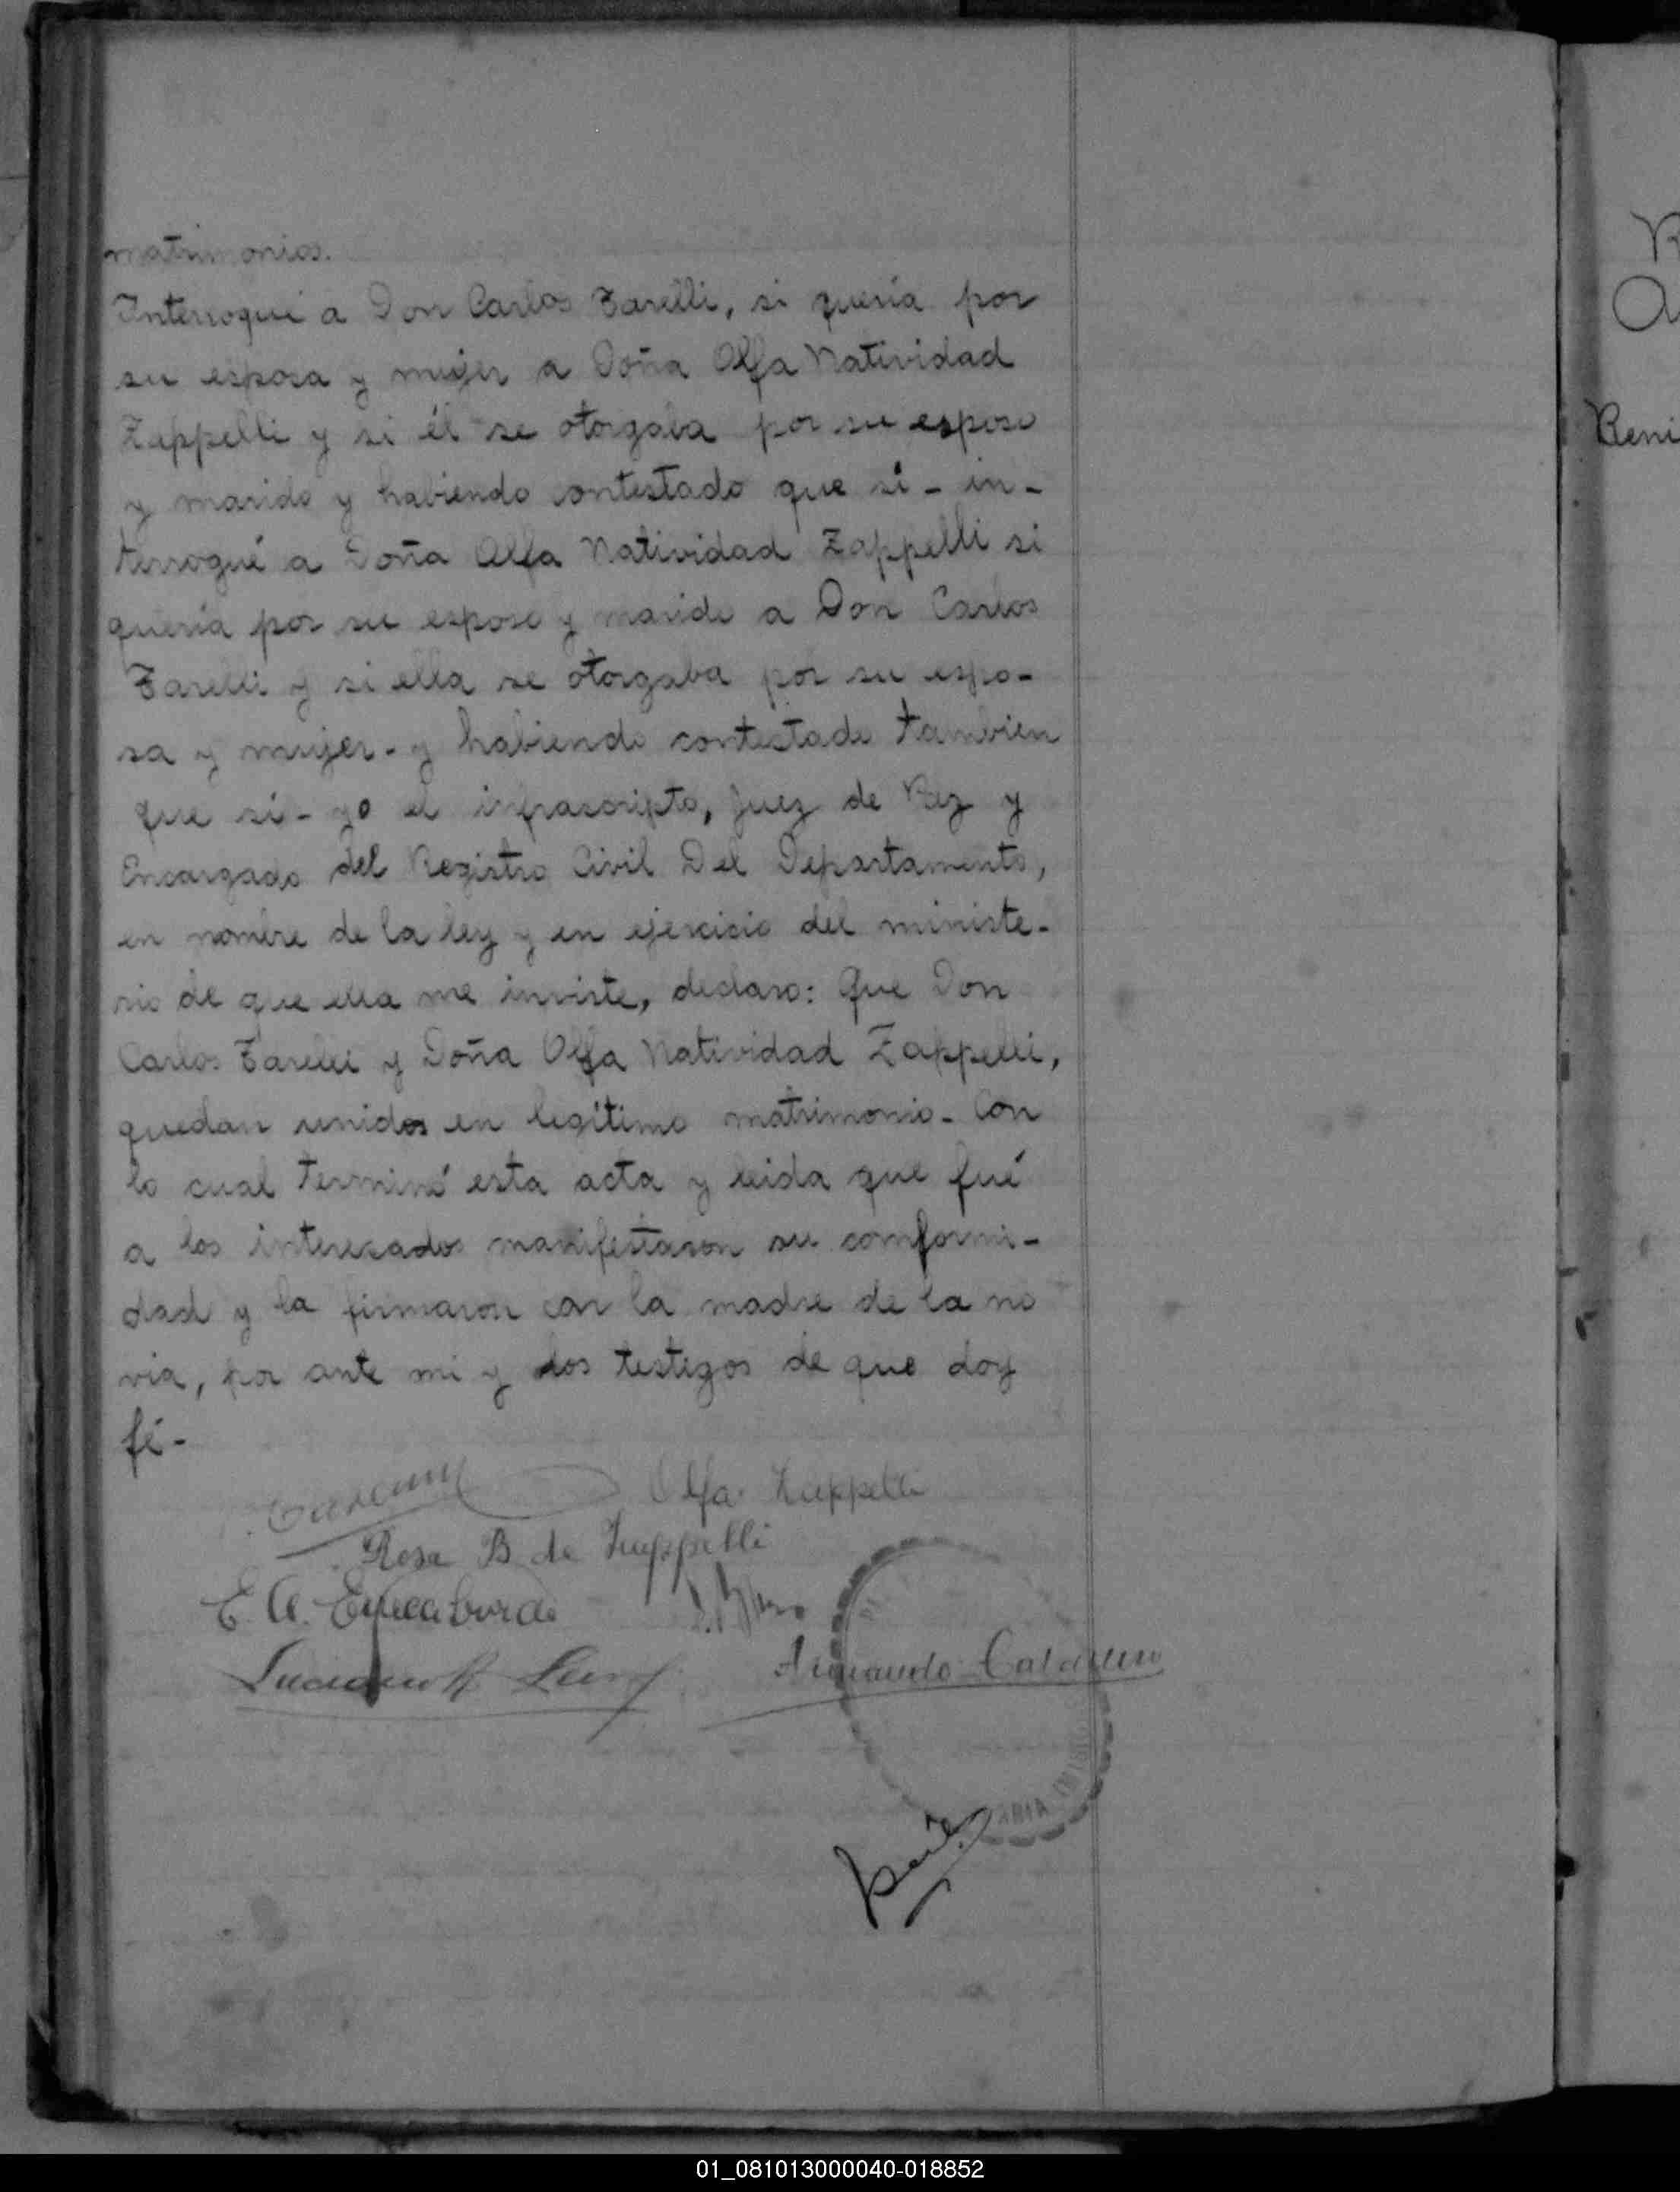 matrimonios.
Interrogué a Don Carlos Farelli, si quería por
su esposa y mujer a Doña Olfa Natividad
Zappelli y si él se otorgaba por su esposo
y marido y habiendo contestado que sí - in-
terrogué a Doña Olfa Natividad Zappelli si
quería por su esposo y marido a Don Carlos
Farelli y si ella se otorgaba por su espo-
sa y mujer - y habiendo contestado tambien
que sí - yo el infrascripto, Juez de Paz y
Encargado del Registro Civil Del Departamento,
en nombre de la ley y en ejercicio del ministe-
rio de que ella me inviste, declaro: Que Don
Carlos Farelli y Doña Olfa Natividad Zappelli,
quedan unidos en legítimo matrimonio - Con
lo cual terminó esta acta y leida que fué
a los interesados manifestaron su comformi-
dad y la firmaron con la madre de la no
via, por ante mi y dos testigos de que doy
fé -
Olfa Zappelli
Rosa B de Zuppelli
E. A.
Armando
R
Reni
01_081013000040-018852